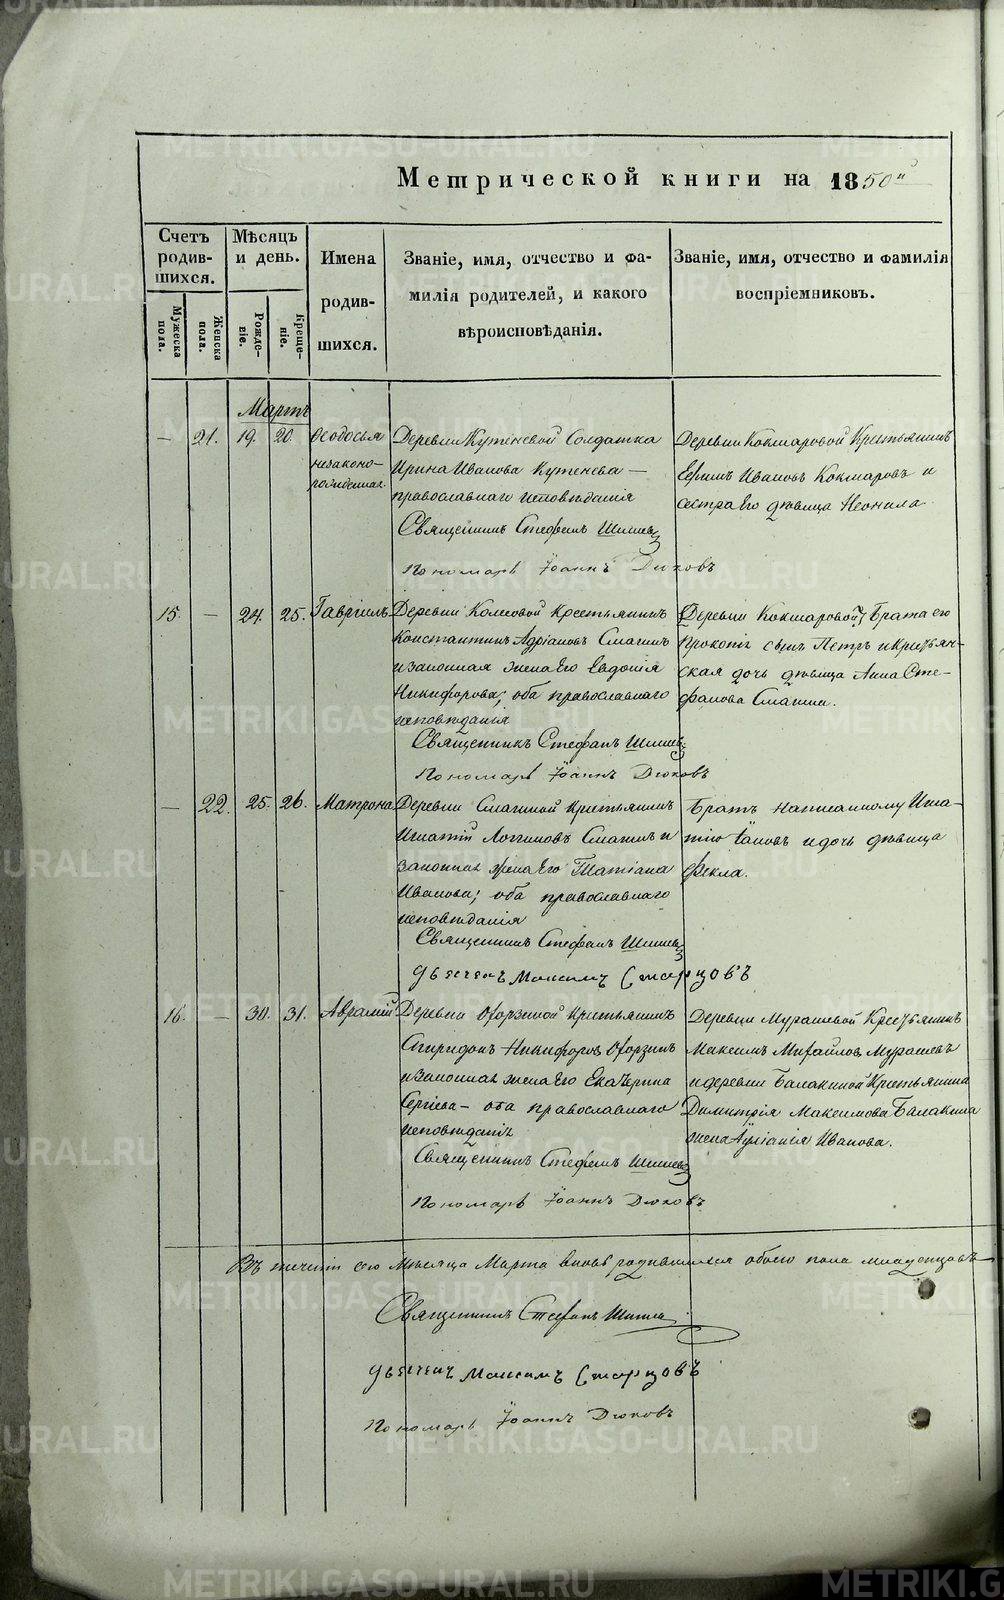 Метрической книги на 1850й
Счетъ родив-шихся.
Мѣсяцъ и день.
Имена родив-шихся.
Званіе, имя, отчество и фа-
милія родителей, и какого
вѣроисповѣданія.
Званіе, имя, отчество и фамилія
воспріемниковъ.
Мужеска пола.
Женска пола.
Рожде-ніе.
Креще-ніе.
Мартъ
— 21. 19. 20. Ѳеодосья
незаконо-
рожденная
Деревни Кутеневой Солдатка
Ирина Иванова Кутенева —
православнаго исповѣданія
Священникъ Стефанъ
Пономарь Іоаннъ Дюковъ
Деревни Кокшаровой Крестьянинъ
Ивановъ Кокшаровъ и
сестра его дѣвица Неонила
15. — 24. 25. Гавріилъ
Деревни Крестьянинъ
Константинъ Адріановъ Смагинъ
и законная жена его Евдокія
Никифорова; оба православнаго
исповѣданія
Священникъ Стефанъ
Пономарь Іоаннъ Дюковъ
Деревни Кокшаровой Брата его
Прокопія сынъ Петръ и Крестьян-
ская дочь дѣвица Анна Сте-
фанова Смагина.
— 22. 25. 26. Матрона
Деревни Смагиной Крестьянинъ
Игнатій Логгиновъ Смагинъ и
законная жена его Татіана
Иванова; оба православнаго
исповѣданія
Священникъ Стефанъ
Дьячекъ Максимъ Старцовъ
Братъ написанному Игна-
тію и дочь дѣвица
Ѳекла.
16. — 30. 31. Аврамій
Деревни Крестьянинъ
Спиридонъ Никифоровъ
и законная жена его Екатерина
Сергіева — оба православнаго
исповѣданія
Священникъ Стефанъ
Пономарь Іоаннъ Дюковъ
Деревни Мурашевой Крестьянинъ
Максимъ Михайловъ Мурашевъ
и деревни Балакиной Крестьянина
Димитрія Максимова Балакина
жена Іуліанія Иванова.
Въ теченіи сего Мѣсяца Марта вновь родившихся обоего пола младенцовъ
Священникъ Стефанъ
Дьячекъ Максимъ Старцовъ
Пономарь Іоаннъ Дюковъ
METRIKI.GASO-URAL.RU